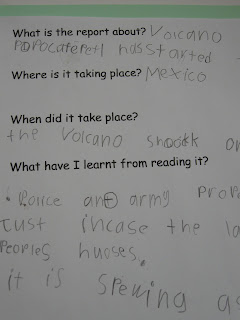 What is the report about? Volcano
Popocatepetl has started
Where is it taking place? Mexico
When did it take place?
the Volcano shoock
What have I learnt from reading it?
• Police and army
Just incase the la
Peoples huoses.
it is spewing as